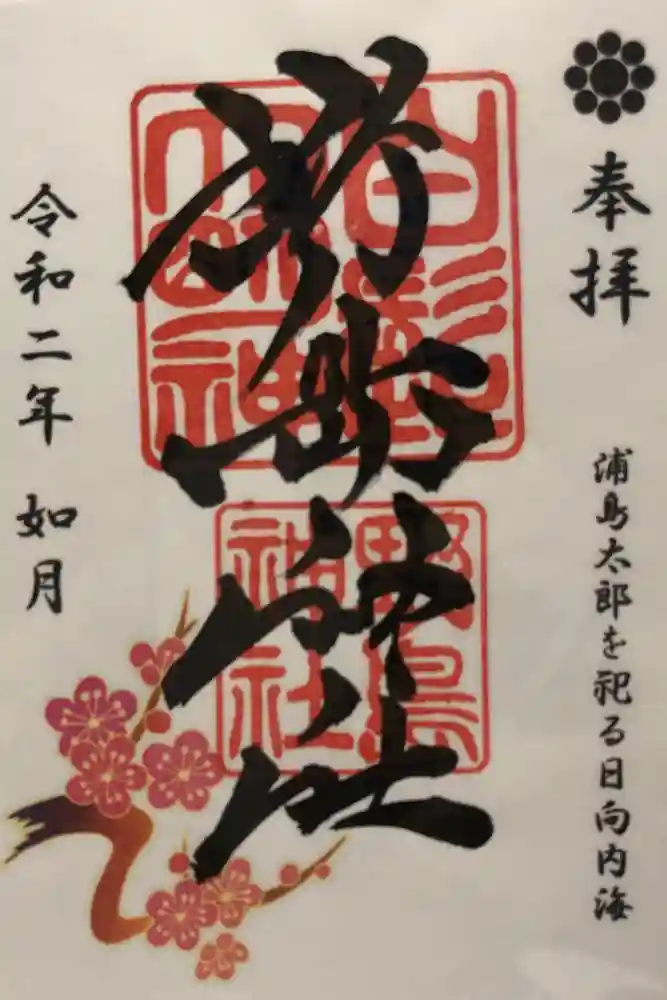 奉拝
浦島太郎を祀る日向内海
野島神社
白髭大明神
野島神社
令和二年 如月